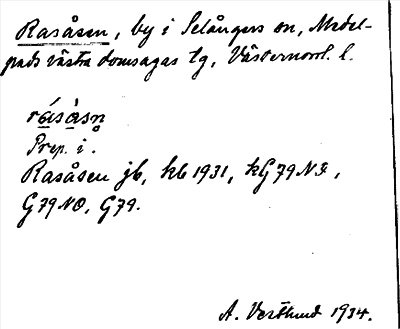 Rasåsen, by i Selångers sn, Medel-
pads västra domsagas tg, Västernorrl. l.
rásàsn̥
Prep. i.
Rasåsen jb, kb 1931, kG79NV,
G79NO, G79.
A. Vestlund 1934.